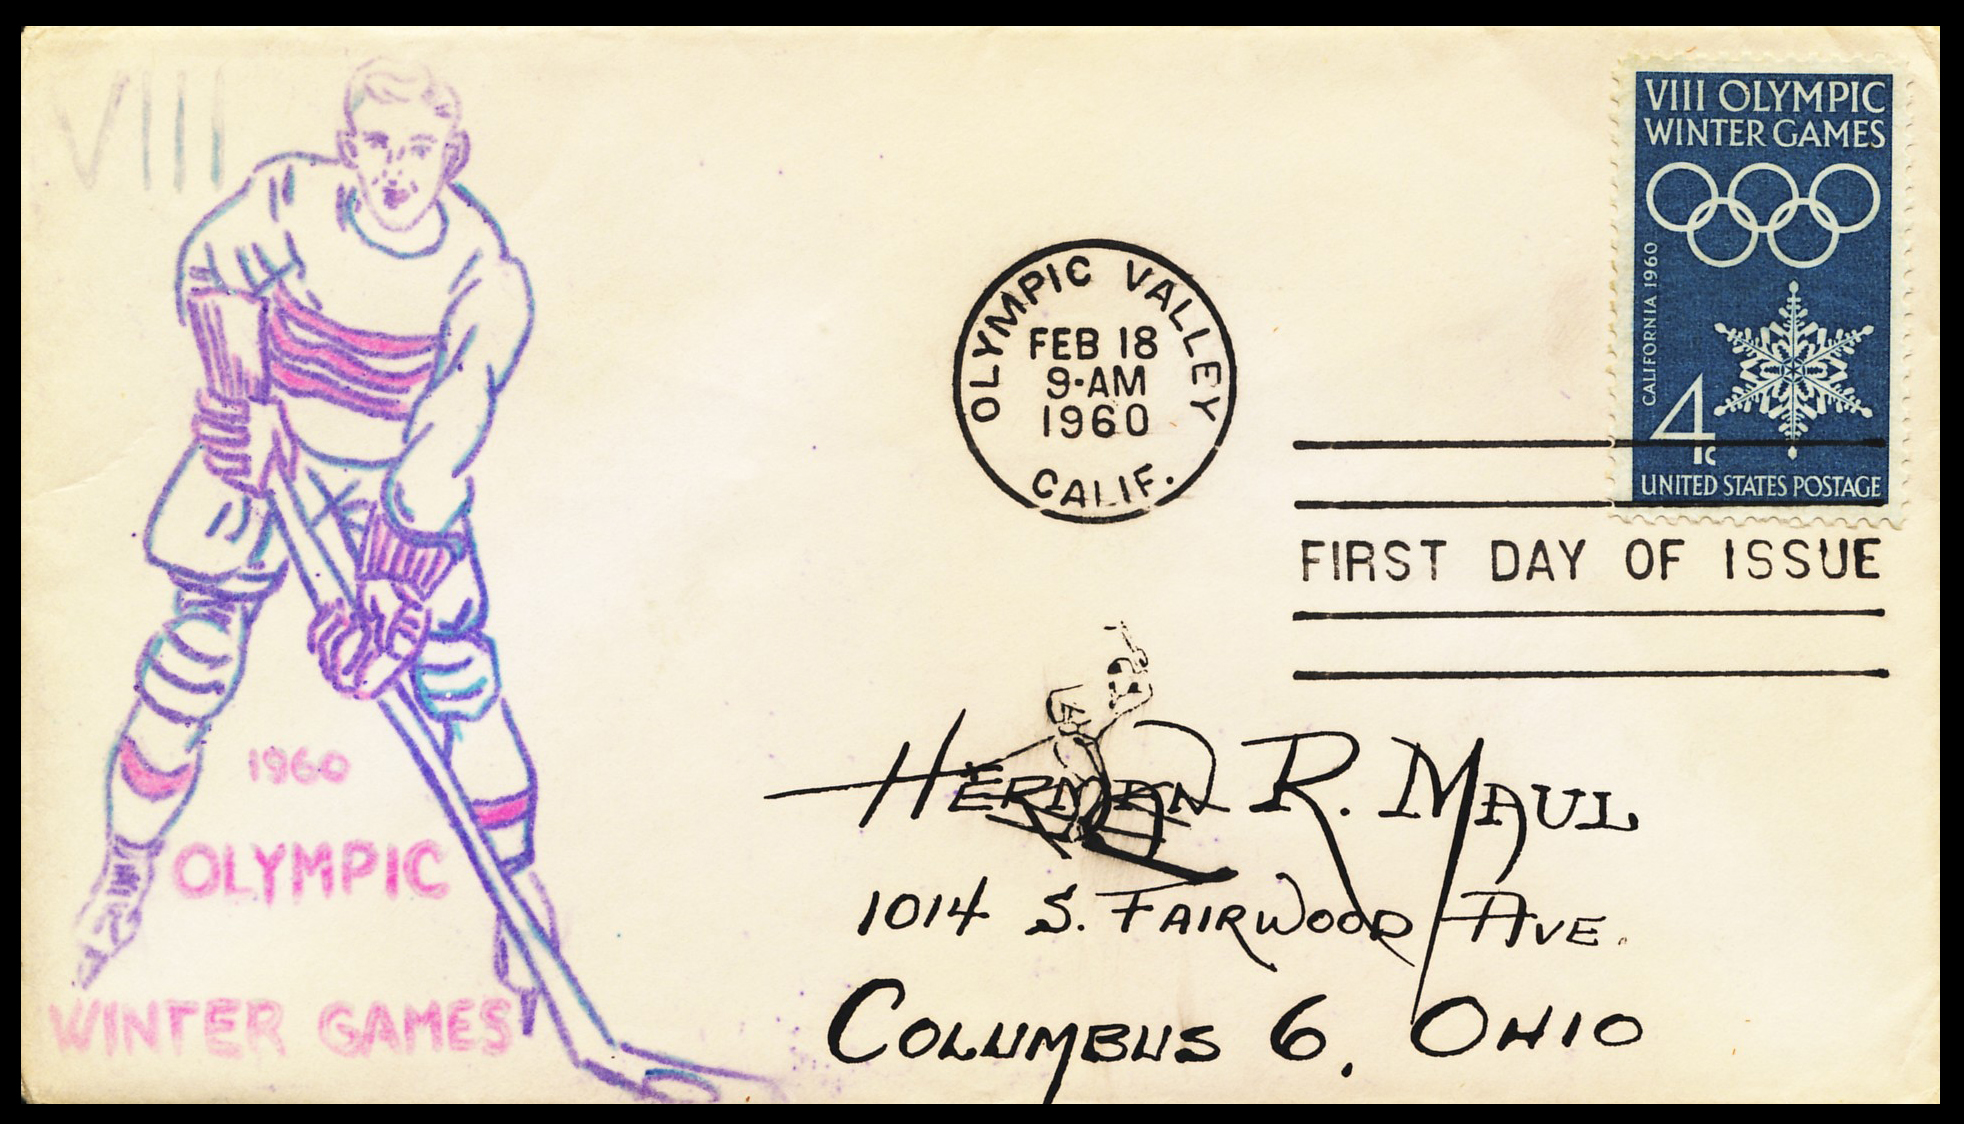 VIII
1960
OLYMPIC
WINTER GAMES
OLYMPIC VALLEY
FEB 18
9-AM
1960
CALIF.
VIII OLYMPIC
WINTER GAMES
CALIFORNIA 1960
4c
UNITED STATES POSTAGE
FIRST DAY OF ISSUE
HERMAN R. MAUL
1014 S. FAIRWOOD AVE.
COLUMBUS 6, OHIO